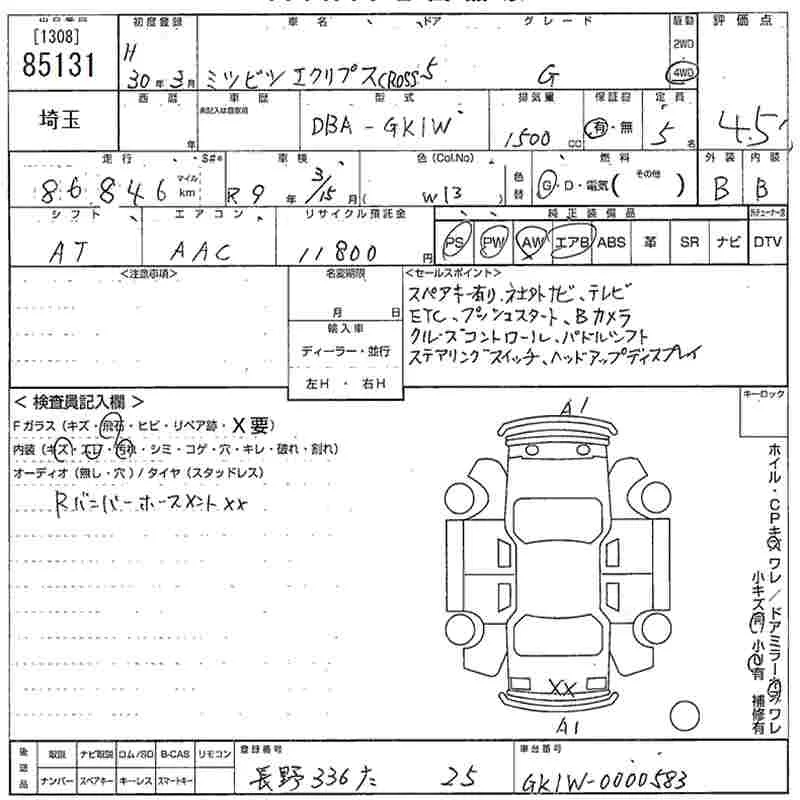 [1308]
85131
埼玉
初度登録 車名 ドア グレード 駆動 評価点
H 30年3月 ミツビシ エクリプスCROSS 5 G 2WD 4WD
西暦 車歴 型式 排気量 保証書 定員
未記入は自家用
年 DBA-GK1W 1500cc 有・無 5名 4.5
走行 S# 車検 色(Col.No) 色替 燃料 外装 内装
86846 マイル km R9年3/15月 ( W13 ) G・D・電気( その他 ) B B
シフト エアコン リサイクル預託金 純正装備品
AT AAC 11800円 PS PW AW エアB ABS 革 SR ナビ DTV
<注意事項> 名変期限 <セールスポイント>
月 日
輸入車
ディーラー・並行
左H・右H
スペアキー有り、社外ナビ、テレビ
ETC、プッシュスタート、Bカメラ
クルーズコントロール、パドルシフト
ステアリングスイッチ、ヘッドアップディスプレイ
<検査員記入欄> キーロック
Fガラス(キズ・飛石・ヒビ・リペア跡・X要)
内装(キズ・スレ・汚れ・シミ・コゲ・穴・キレ・破れ・割れ)
オーディオ(無し・穴)/タイヤ(スタッドレス)
Rバンパーホースメント××
A1
XX
A1
ホイル・CPキズワレ/ドアミラーキズワレ
小キズ有 小U有 補修有
後送品 取説 ナビ取説 ロム/SD B-CAS リモコン
ナンバー スペアキー キーレス スマートキー
登録番号 車台番号
長野 336 た 25 GK1W-0000583